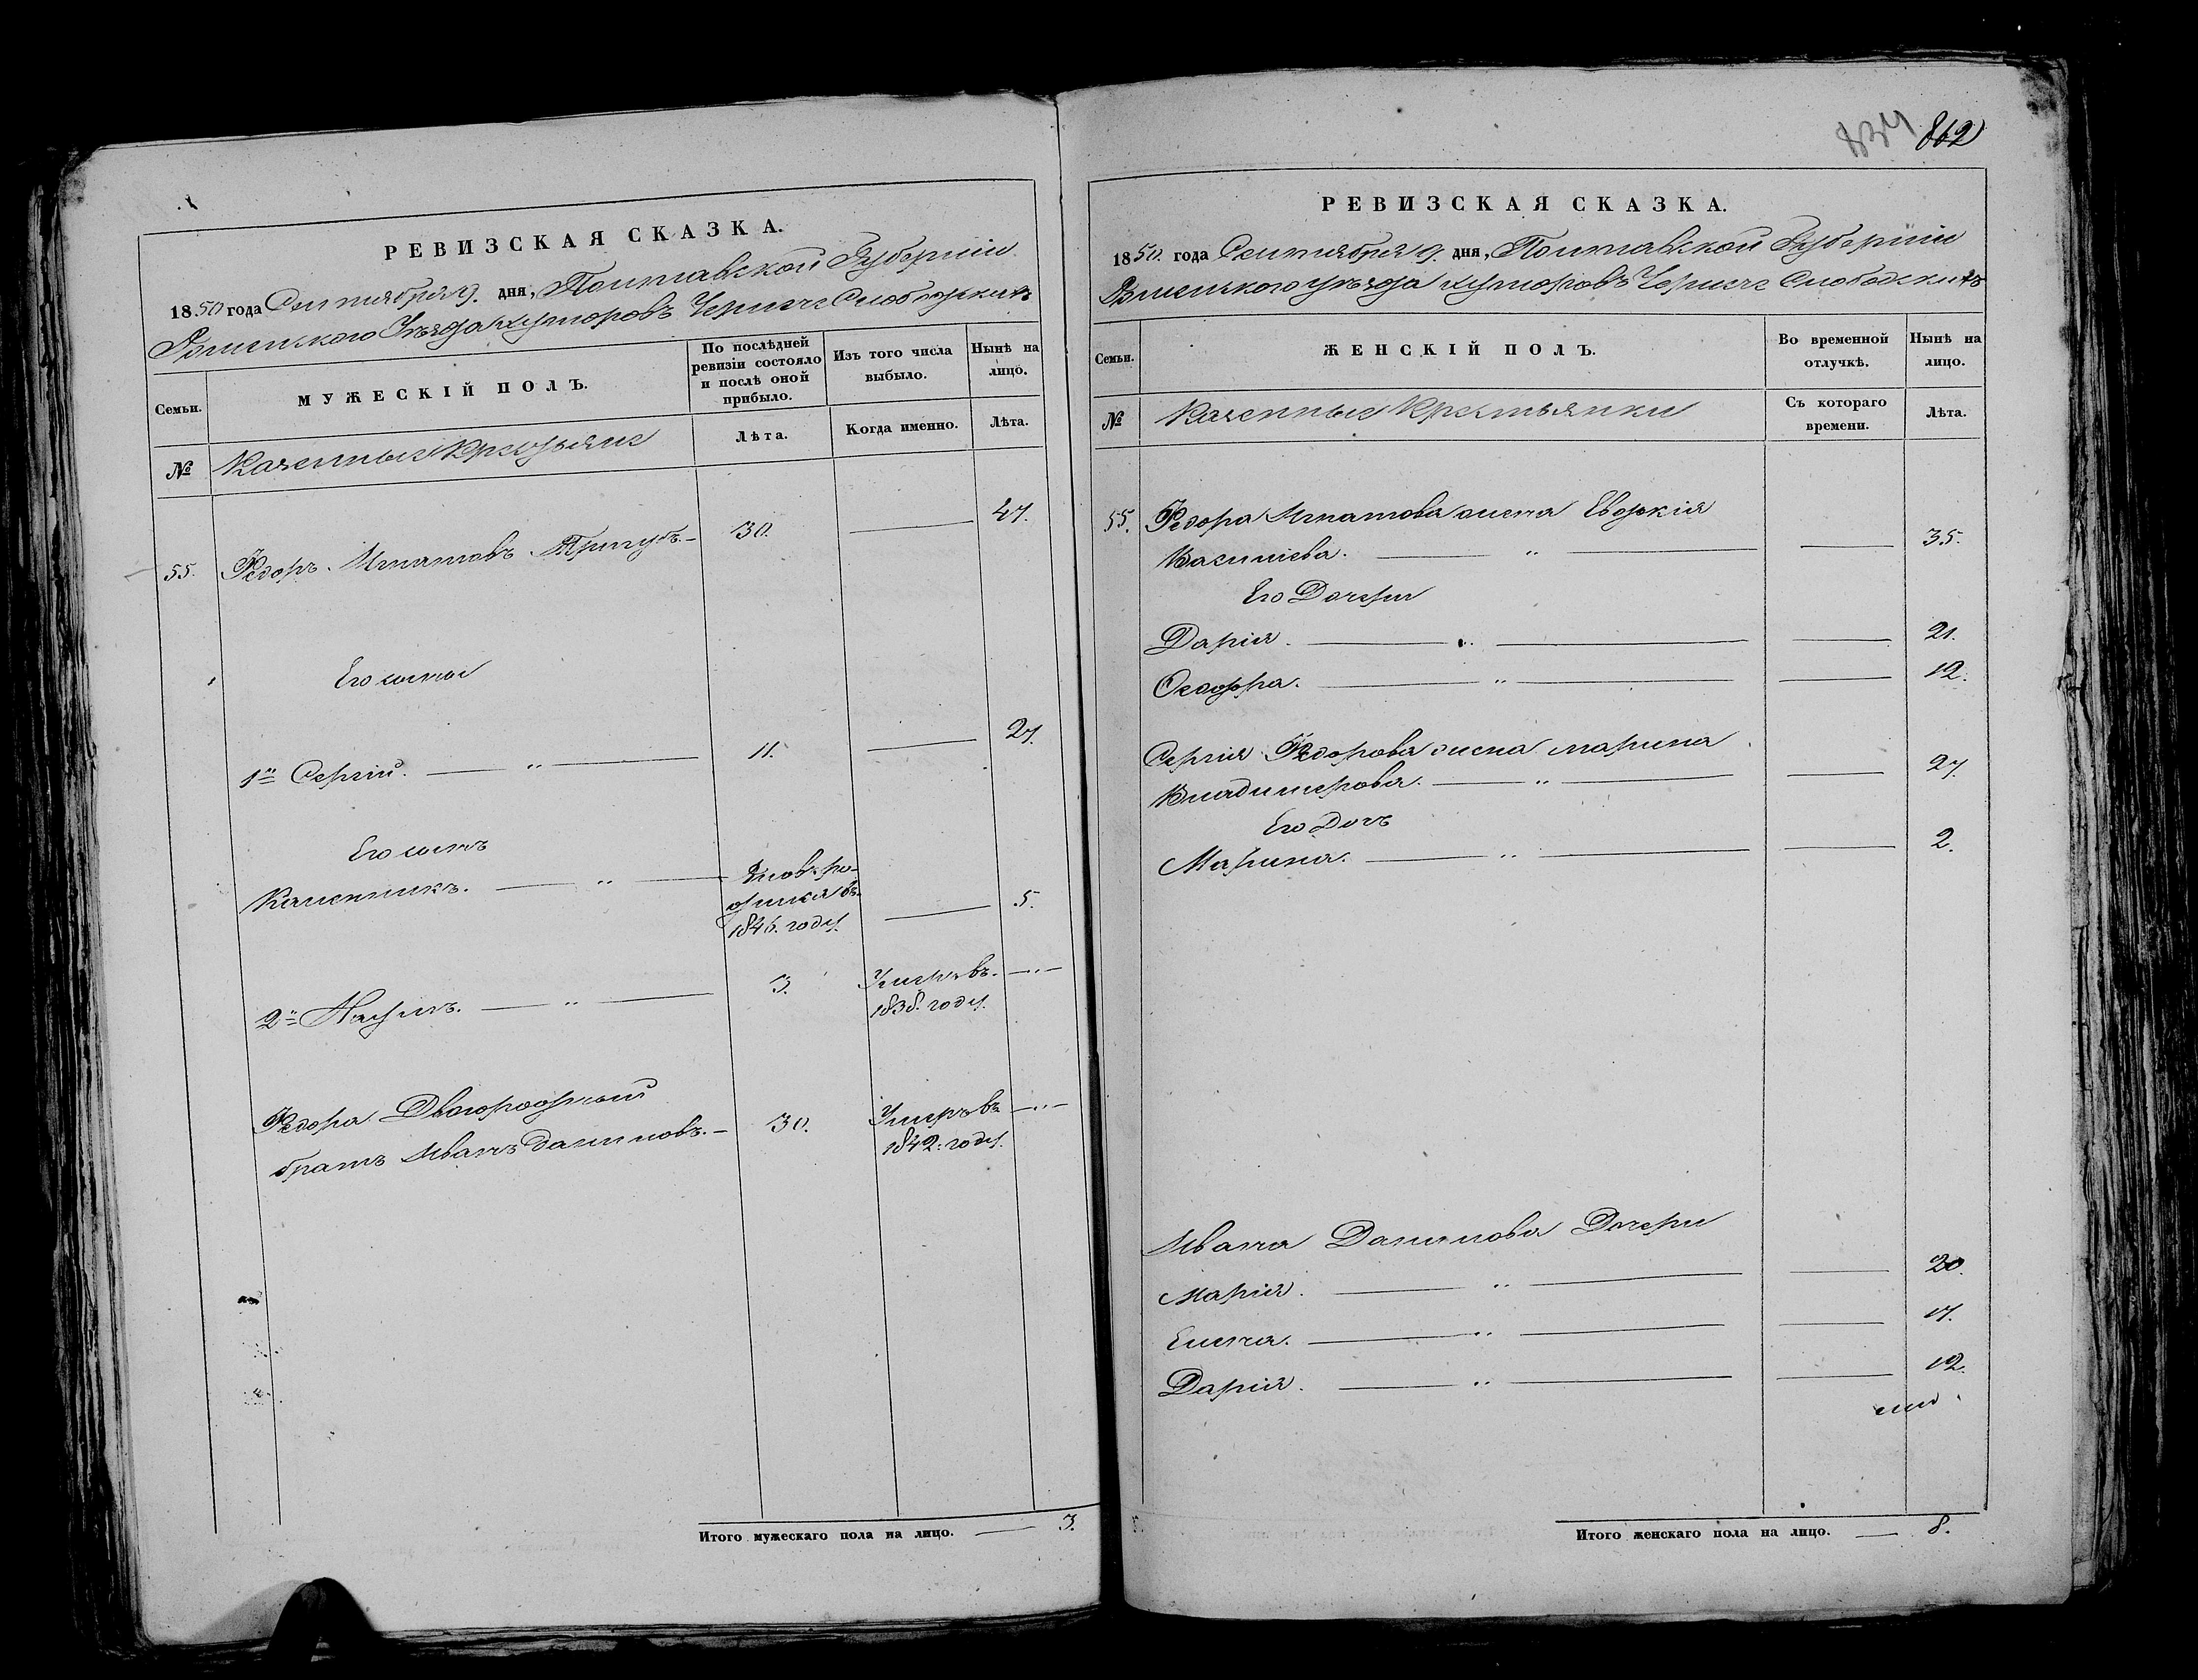 РЕВИЗСКАЯ СКАЗКА.
1850 года Сентября 9. дня, Полтавской Губерніи
Роменского Уѣзда хуторовъ Черниче Слободскихъ
Семьи.
МУЖЕСКІЙ ПОЛЪ.
По послѣдней
ревизіи состояло
и послѣ оной
прибыло.
Изъ того числа
выбыло.
Нынѣ на
лицо.
№
Казенные Крестьяне
Лѣта.
Когда именно.
Лѣта.
55. Федоръ Игнатовъ Пригубъ. 30. 47.
Его сыны
1й Сергій. 11. 27.
Его сынъ
Каленникъ. Вновь ро-
дился въ
1845. году. 5.
2й Наумъ. 3. Умеръ въ
1838. году.
Федора Двоюродный
братъ Иванъ Даниловъ. 30. Умеръ въ
1842. году.
Итого мужескаго пола на лицо. 3.
834 862
РЕВИЗСКАЯ СКАЗКА.
1850. года Сентября 9. дня, Полтавской Губерніи
Роменского уѣзда хуторовъ Черниче Слободскихъ
Семьи.
ЖЕНСКІЙ ПОЛЪ.
Во временной
отлучкѣ.
Нынѣ на
лицо.
№
Казенные Крестьянки
Съ котораго
времени.
Лѣта.
55. Федора Игнатова жена Евдокія
Василіева. 35.
Его Дочери
Дарія. 21.
Феодора. 12.
Сергія Федорова жена марина
Владимерова. 27.
Его Дочь
Марина. 2.
Ивана Данилова Дочери
Марія. 20.
Елена. 17.
Дарія. 12.
Итого женскаго пола на лицо. 8.